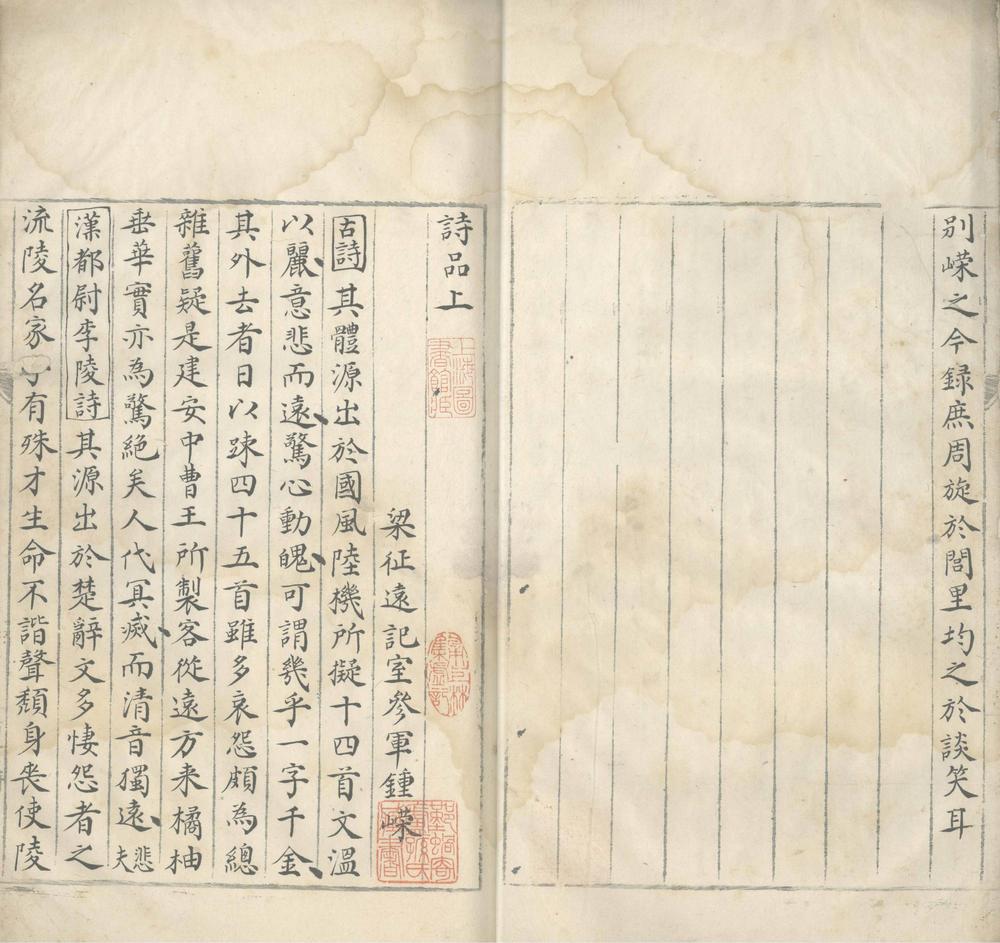 别嶸之今録庶周旋於閭里均之於談笑耳
詩品上
上海圖書館藏
梁征遠記室參軍鍾嶸
古詩其體源出於國風陸機所擬十四首文溫
以麗意悲而遠驚心動魄可謂幾乎一字千金
其外去者日以踈四十五首雖多哀怨頗為總
雜舊疑是建安中曹王所製客從遠方来橘柚
垂華實亦為驚絕矣人代冥滅而清音獨遠悲夫
漢都尉李陵詩其源出於楚辭文多悽怨者之
流陵名家子有殊才生命不諧聲頽身喪使陵